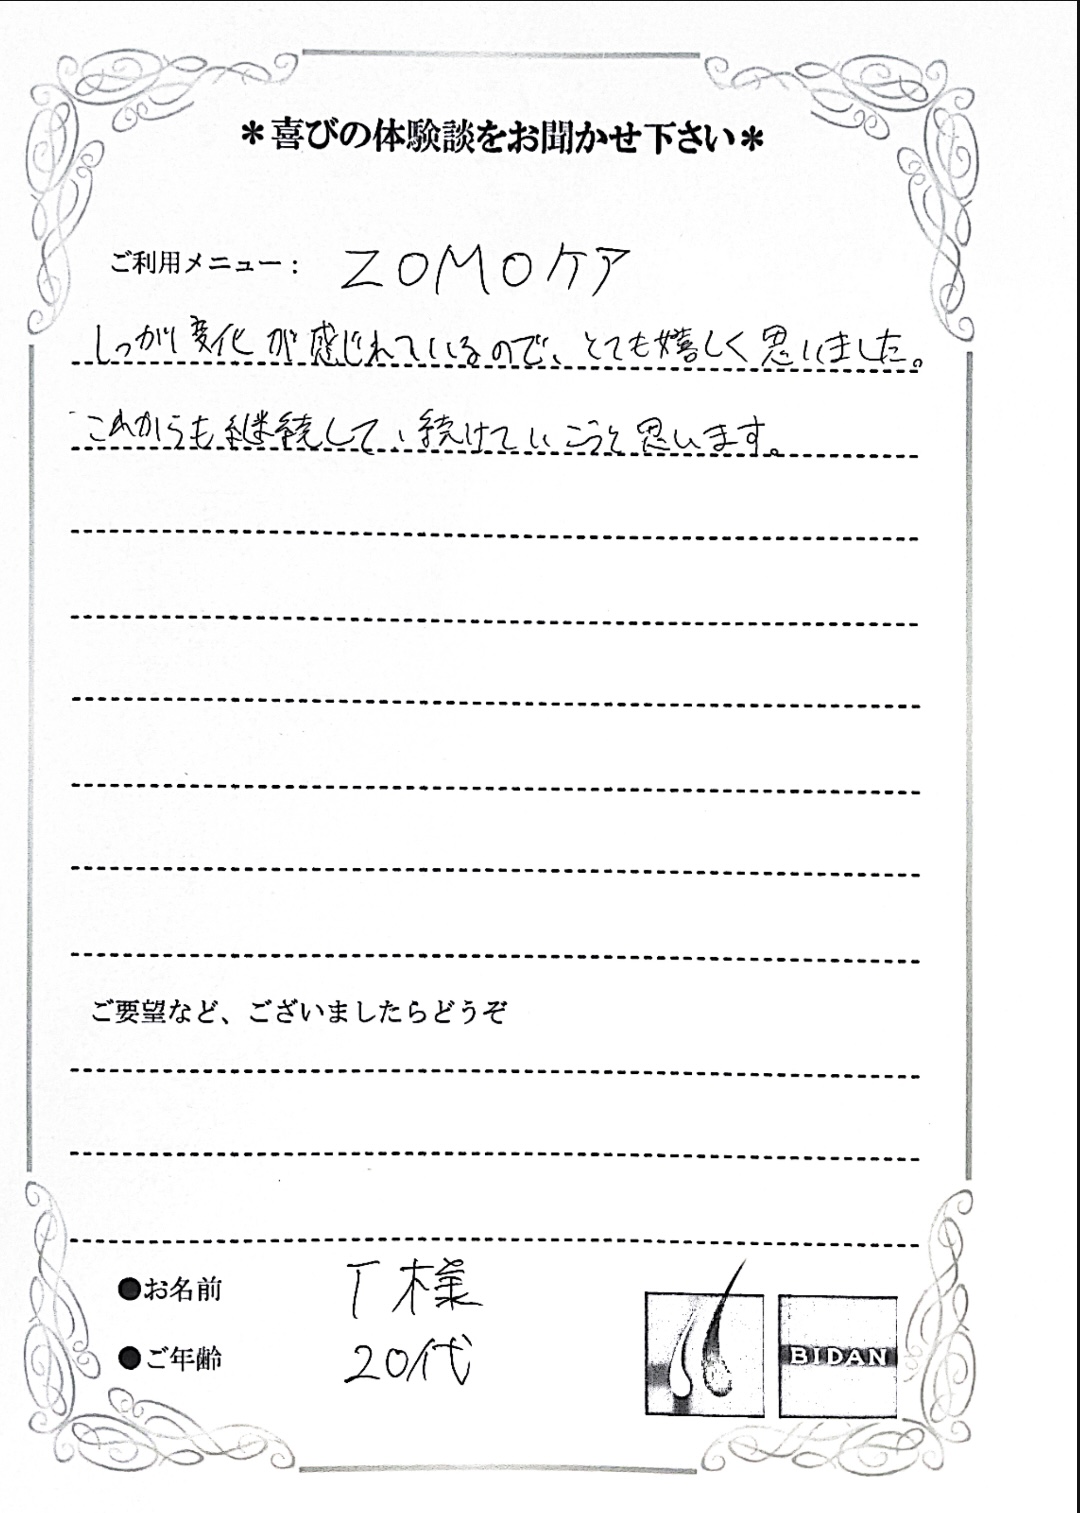 ＊喜びの体験談をお聞かせ下さい＊
ご利用メニュー： ZOMOケア
しっかり変化が感じれているので、とても嬉しく思いました。
これからも継続して、続けていこうと思います。
ご要望など、ございましたらどうぞ
●お名前 T様
●ご年齢 20代
BIDAN